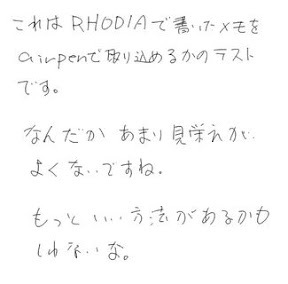 これはRHODIAで書いたメモを
airpenで取り込めるかのテスト
です。
なんだか あまり見栄えが
よくないですね。
もっといい方法があるかも
しれないな。